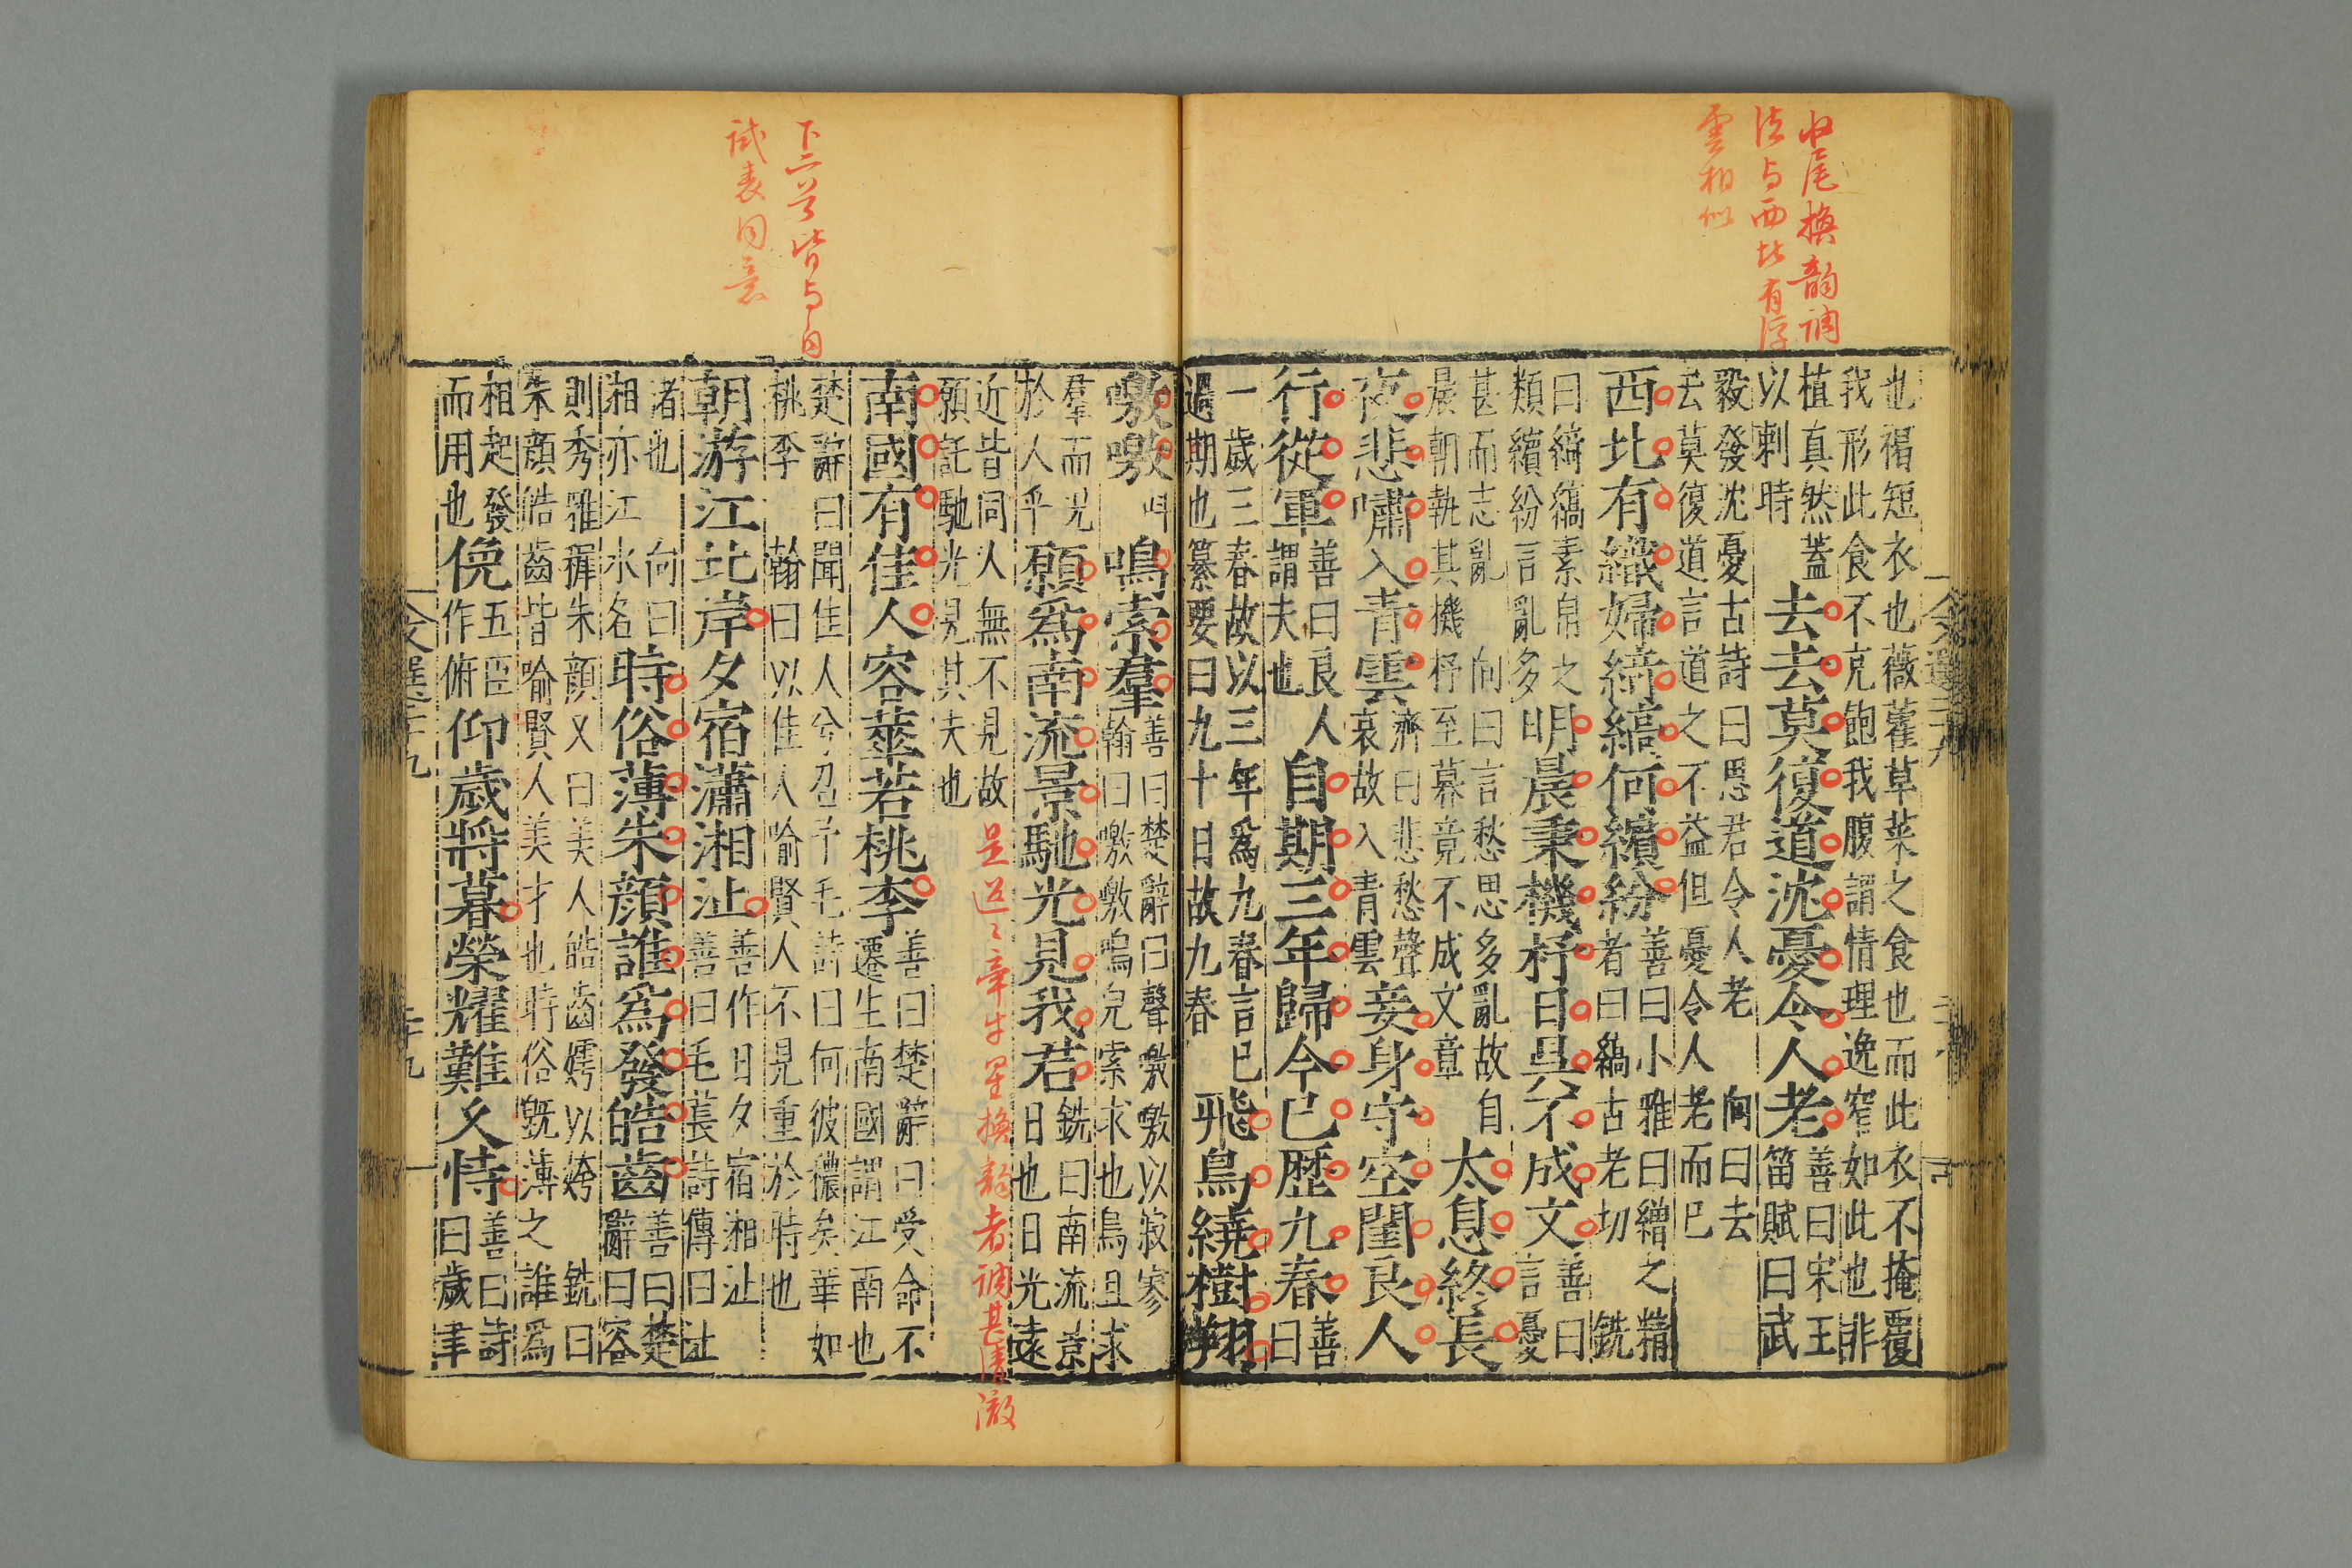 收尾換韵調
法与西北有浮
雲相似
也裼短衣也薇藿草菜之食也而此衣不掩覆
我形此食不克飽我腹謂情理逸窄如此也非
植真然蓋
以刺時
去去莫復道沈憂令人老
善曰宋王
笛賦曰武
毅發沈憂古詩曰思君令人老 向曰去
去莫復道言道之不益但憂令人老而已
西北有織婦綺縞何繽紛
善曰小雅曰繒之精
者曰縞古老切 銑
曰綺縞素帛之
類繽紛言亂多
明晨秉機杼日昃不成文
善曰
言憂
甚而志亂 向曰言愁思多亂故自
晨朝執其機杼至暮竟不成文章
太息終長
夜悲嘯入青雲
濟曰悲愁聲
哀故入青雲
妾身守空閨良人
行從軍
善曰良人
謂夫也
自期三年歸今已歷九春
善
曰
一歲三春故以三年爲九春言已
過期也纂要曰九十日故九春
飛鳥繞樹翔
噭噭
叫
鳴索羣
善曰楚辭曰聲噭噭以寂寥
翰曰噭噭鳴皃索求也鳥且求
羣而况
於人乎
願爲南流景馳光見我君
銑曰南流景
日也日光遠
近皆同人無不見故
願託馳光見其夫也
是送送章生里換韵者調甚清澈
下二首皆与自
試表同意
南國有佳人容華若桃李
善曰楚辭曰受命不
遷生南國謂江南也
楚辭曰聞佳人兮召予毛詩曰何彼穠矣華如
桃李 翰曰以佳人喻賢人不見重於時也
朝游江北岸夕宿瀟湘沚
善作日夕宿湘沚
善曰毛萇詩傳曰沚
渚也 向曰
湘亦江水名
時俗薄朱顏誰爲發皓齒
善曰楚
辭曰容
則秀雅穉朱顏又曰美人皓齒嫮以姱 銑曰
朱顏皓齒皆喻賢人美才也時俗旣薄之誰爲
相起發
而用也
俛
五臣
作俯
仰歲將暮榮耀難久恃
善曰詩
曰歲聿